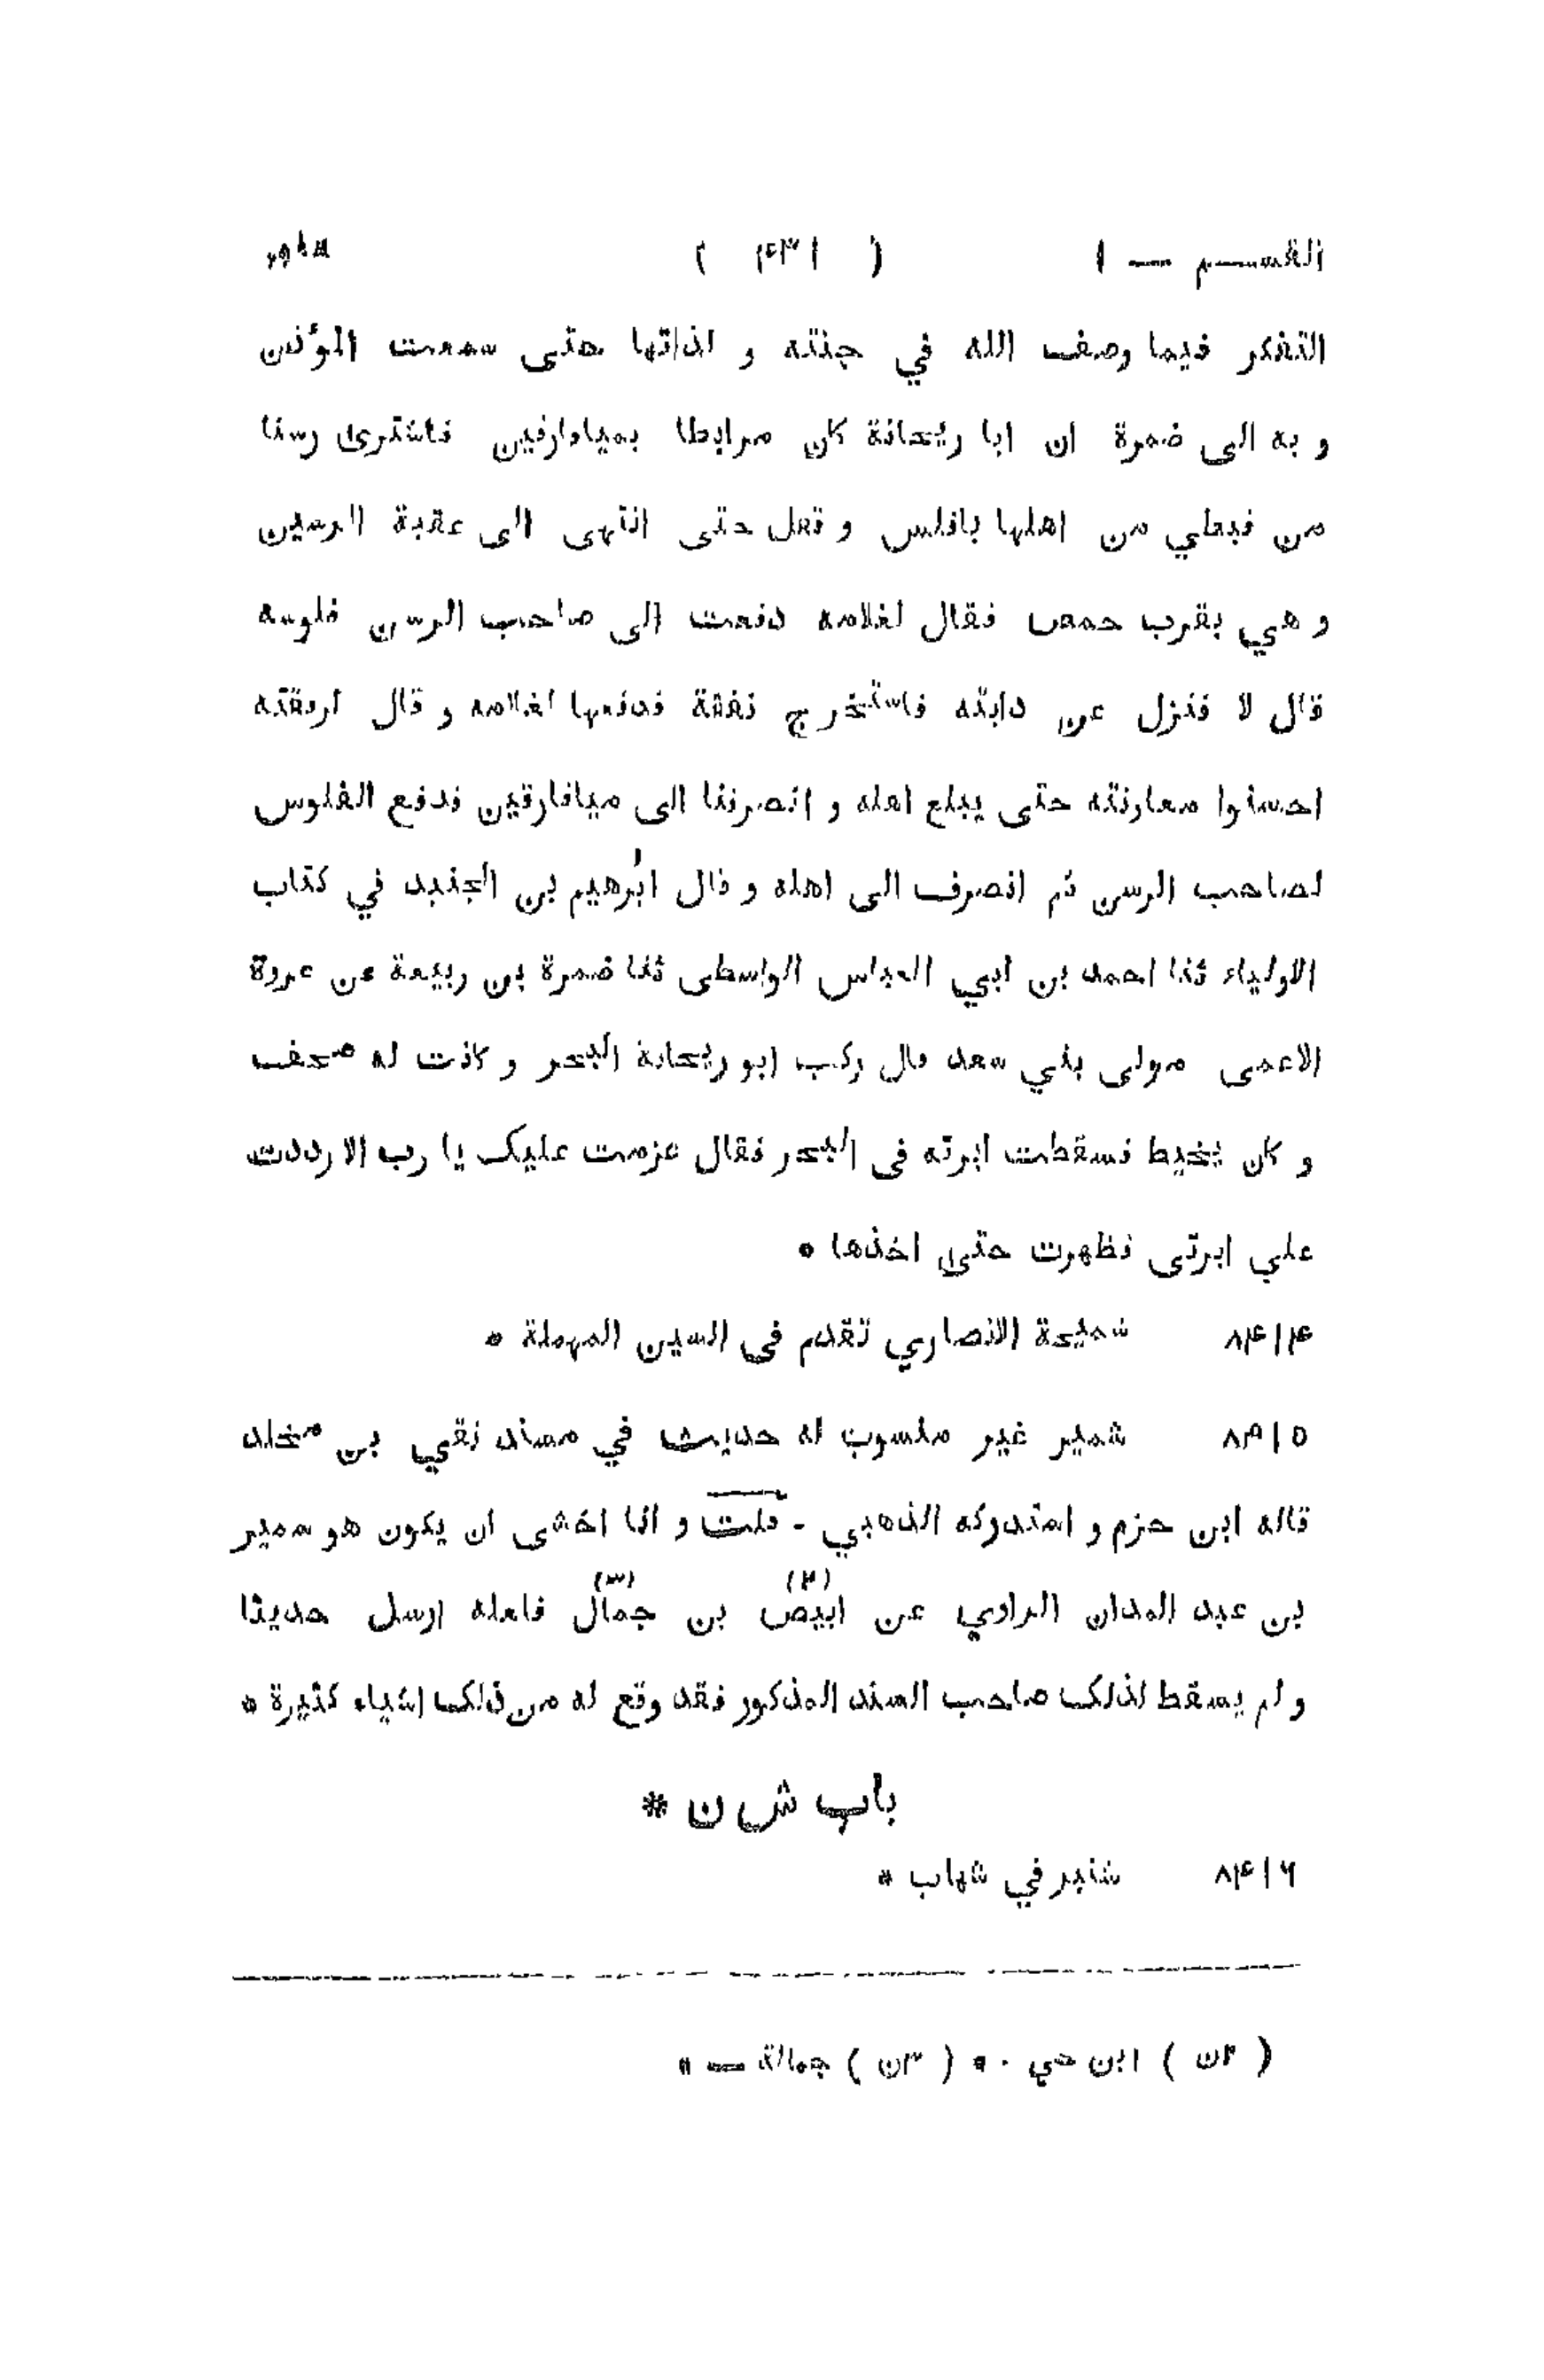 القســم — ١ ( ۴٣١ )
التفكر فيما وصف الله في جنته و لذاتها حتى سمعت المؤذن
و به الى ضمرة ان ابا ريحانة كان مرابطا بميافارقين فاشترى رسنا
من نبطي من اهلها بافلس و قفل حتى انتهى الى عقبة الرسين
و هي بقرب حمص فقال لغلامه دفعت الى صاحب الرسن فلوسه
قال لا فنزل عن دابته فاستخرج نفقة فدفعها لغلامه و قال لرفقته
احسنوا معاونته حتى يبلغ اهله و انصرفنا الى ميافارقين فدفع الفلوس
لصاحب الرسن ثم انصرف الى اهله و قال ابرهيم بن الجنيد في كتاب
الاولياء ثنا احمد بن ابي العباس الواسطى ثنا ضمرة بن ربيعة عن عروة
الاعمى مولى بني سعد قال ركب ابو ريحانة البحر و كانت له صحف
و كان يخيط فسقطت ابرته فى البحر فقال عزمت عليك يا رب الا رددت
علي ابرتى فظهرت حتى اخذها *
٨۴١۴ شميحة الانصاري تقدم فى السين المهملة *
٨۴١٥ شمير غير منسوب له حديث في مسند نقي بن مخلد
قاله ابن حزم و استدركه الذهبي - قلت و انا اخشى ان يكون هو سمير
بن عبد المدان الراوي عن ابيض (٢) بن جمال (٣) فلعله ارسل حديثا
و لم يسقط لذلك صاحب المسند المذكور فقد وقع له من ذلك اشياء كثيرة *
باب ش ن *
٨۴١٦ شنير في شهاب *
( ٢ن ) ابن حي . * ( ٣ن ) جمالة — *